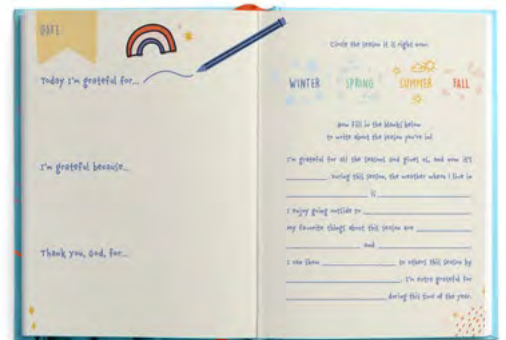 DATE
Today I'm grateful for...
I'm grateful because...
Thank you, God, for...
Circle the season it is right now.
WINTER SPRING SUMMER FALL
Now fill in the blanks below
to write about the season you're in!
I'm grateful for all the seasons God gives us, and now it's
. During this season, the weather where I live in
is .
I enjoy going outside to
My favorite things about this season are
and
I can show to others this season by
. I'm extra grateful for
during this time of the year.